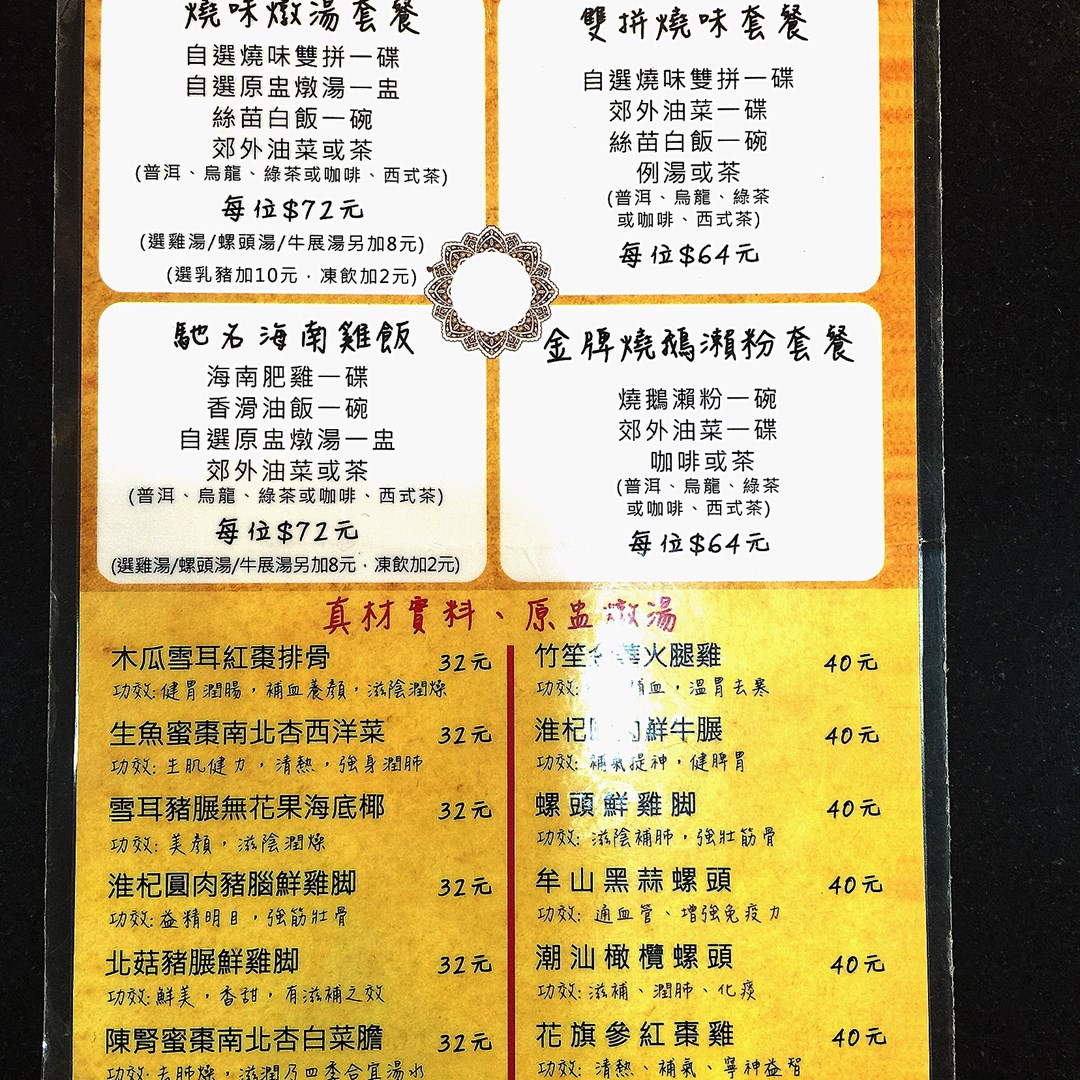 燒味燉湯套餐
自選燒味雙拼一碟
自選原盅燉湯一盅
絲苗白飯一碗
郊外油菜或茶
(普洱、烏龍、綠茶或咖啡、西式茶)
每位$72元
(選雞湯/螺頭湯/牛展湯另加8元)
(選乳豬加10元，凍飲加2元)
雙拼燒味套餐
自選燒味雙拼一碟
郊外油菜一碟
絲苗白飯一碗
例湯或茶
(普洱、烏龍、綠茶
或咖啡、西式茶)
每位$64元
馳名海南雞飯
海南肥雞一碟
香滑油飯一碗
自選原盅燉湯一盅
郊外油菜或茶
(普洱、烏龍、綠茶或咖啡、西式茶)
每位$72元
(選雞湯/螺頭湯/牛展湯另加8元，凍飲加2元)
金牌燒鵝瀨粉套餐
燒鵝瀨粉一碗
郊外油菜一碟
咖啡或茶
(普洱、烏龍、綠茶
或咖啡、西式茶)
每位$64元
真材實料、原盅燉湯
木瓜雪耳紅棗排骨 32元
功效:健胃潤腸，補血養顏，滋陰潤燥
生魚蜜棗南北杏西洋菜 32元
功效: 生肌健力，清熱，強身潤肺
雪耳豬腒無花果海底椰 32元
功效: 美顏，滋陰潤燥
淮杞圓肉豬腦鮮雞脚 32元
功效:益精明目，強筋壯骨
北菇豬腒鮮雞脚 32元
功效:鮮美，香甜，有滋補之效
陳腎蜜棗南北杏白菜膽 32元
功效:去肺燥，滋潤乃四季合宜湯水
竹笙 火腿雞 40元
功效: 補血，溫胃去寒
淮杞 肉鮮牛腒 40元
功效: 補氣提神，健脾胃
螺頭鮮雞脚 40元
功效: 滋陰補肺，強壯筋骨
牟山黑蒜螺頭 40元
功效: 通血管、增強免疫力
潮汕橄欖螺頭 40元
功效: 滋補、潤肺、化痰
花旗參紅棗雞 40元
功效: 清熱、補氣、寧神益智